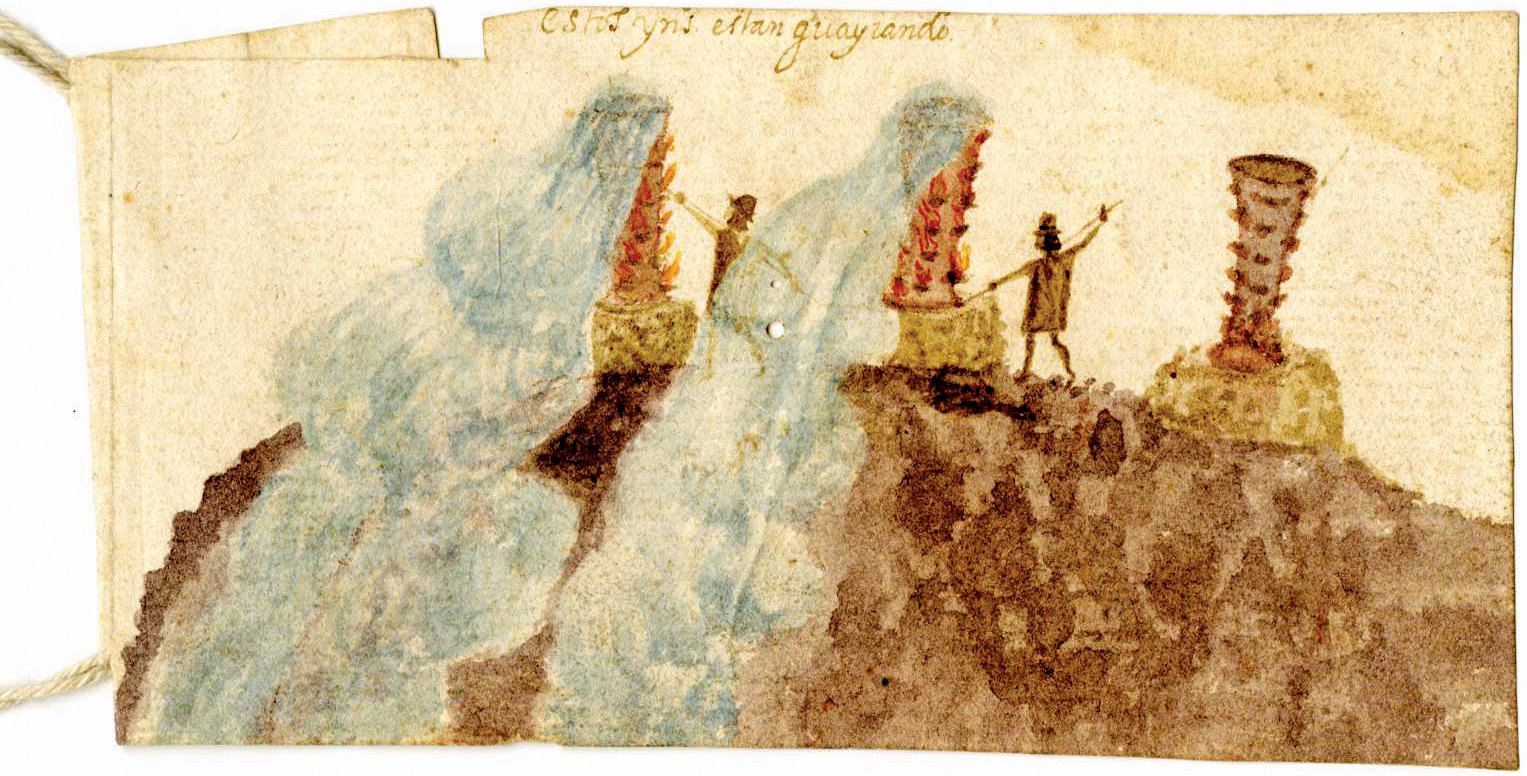 estos yns. estan guayrando.